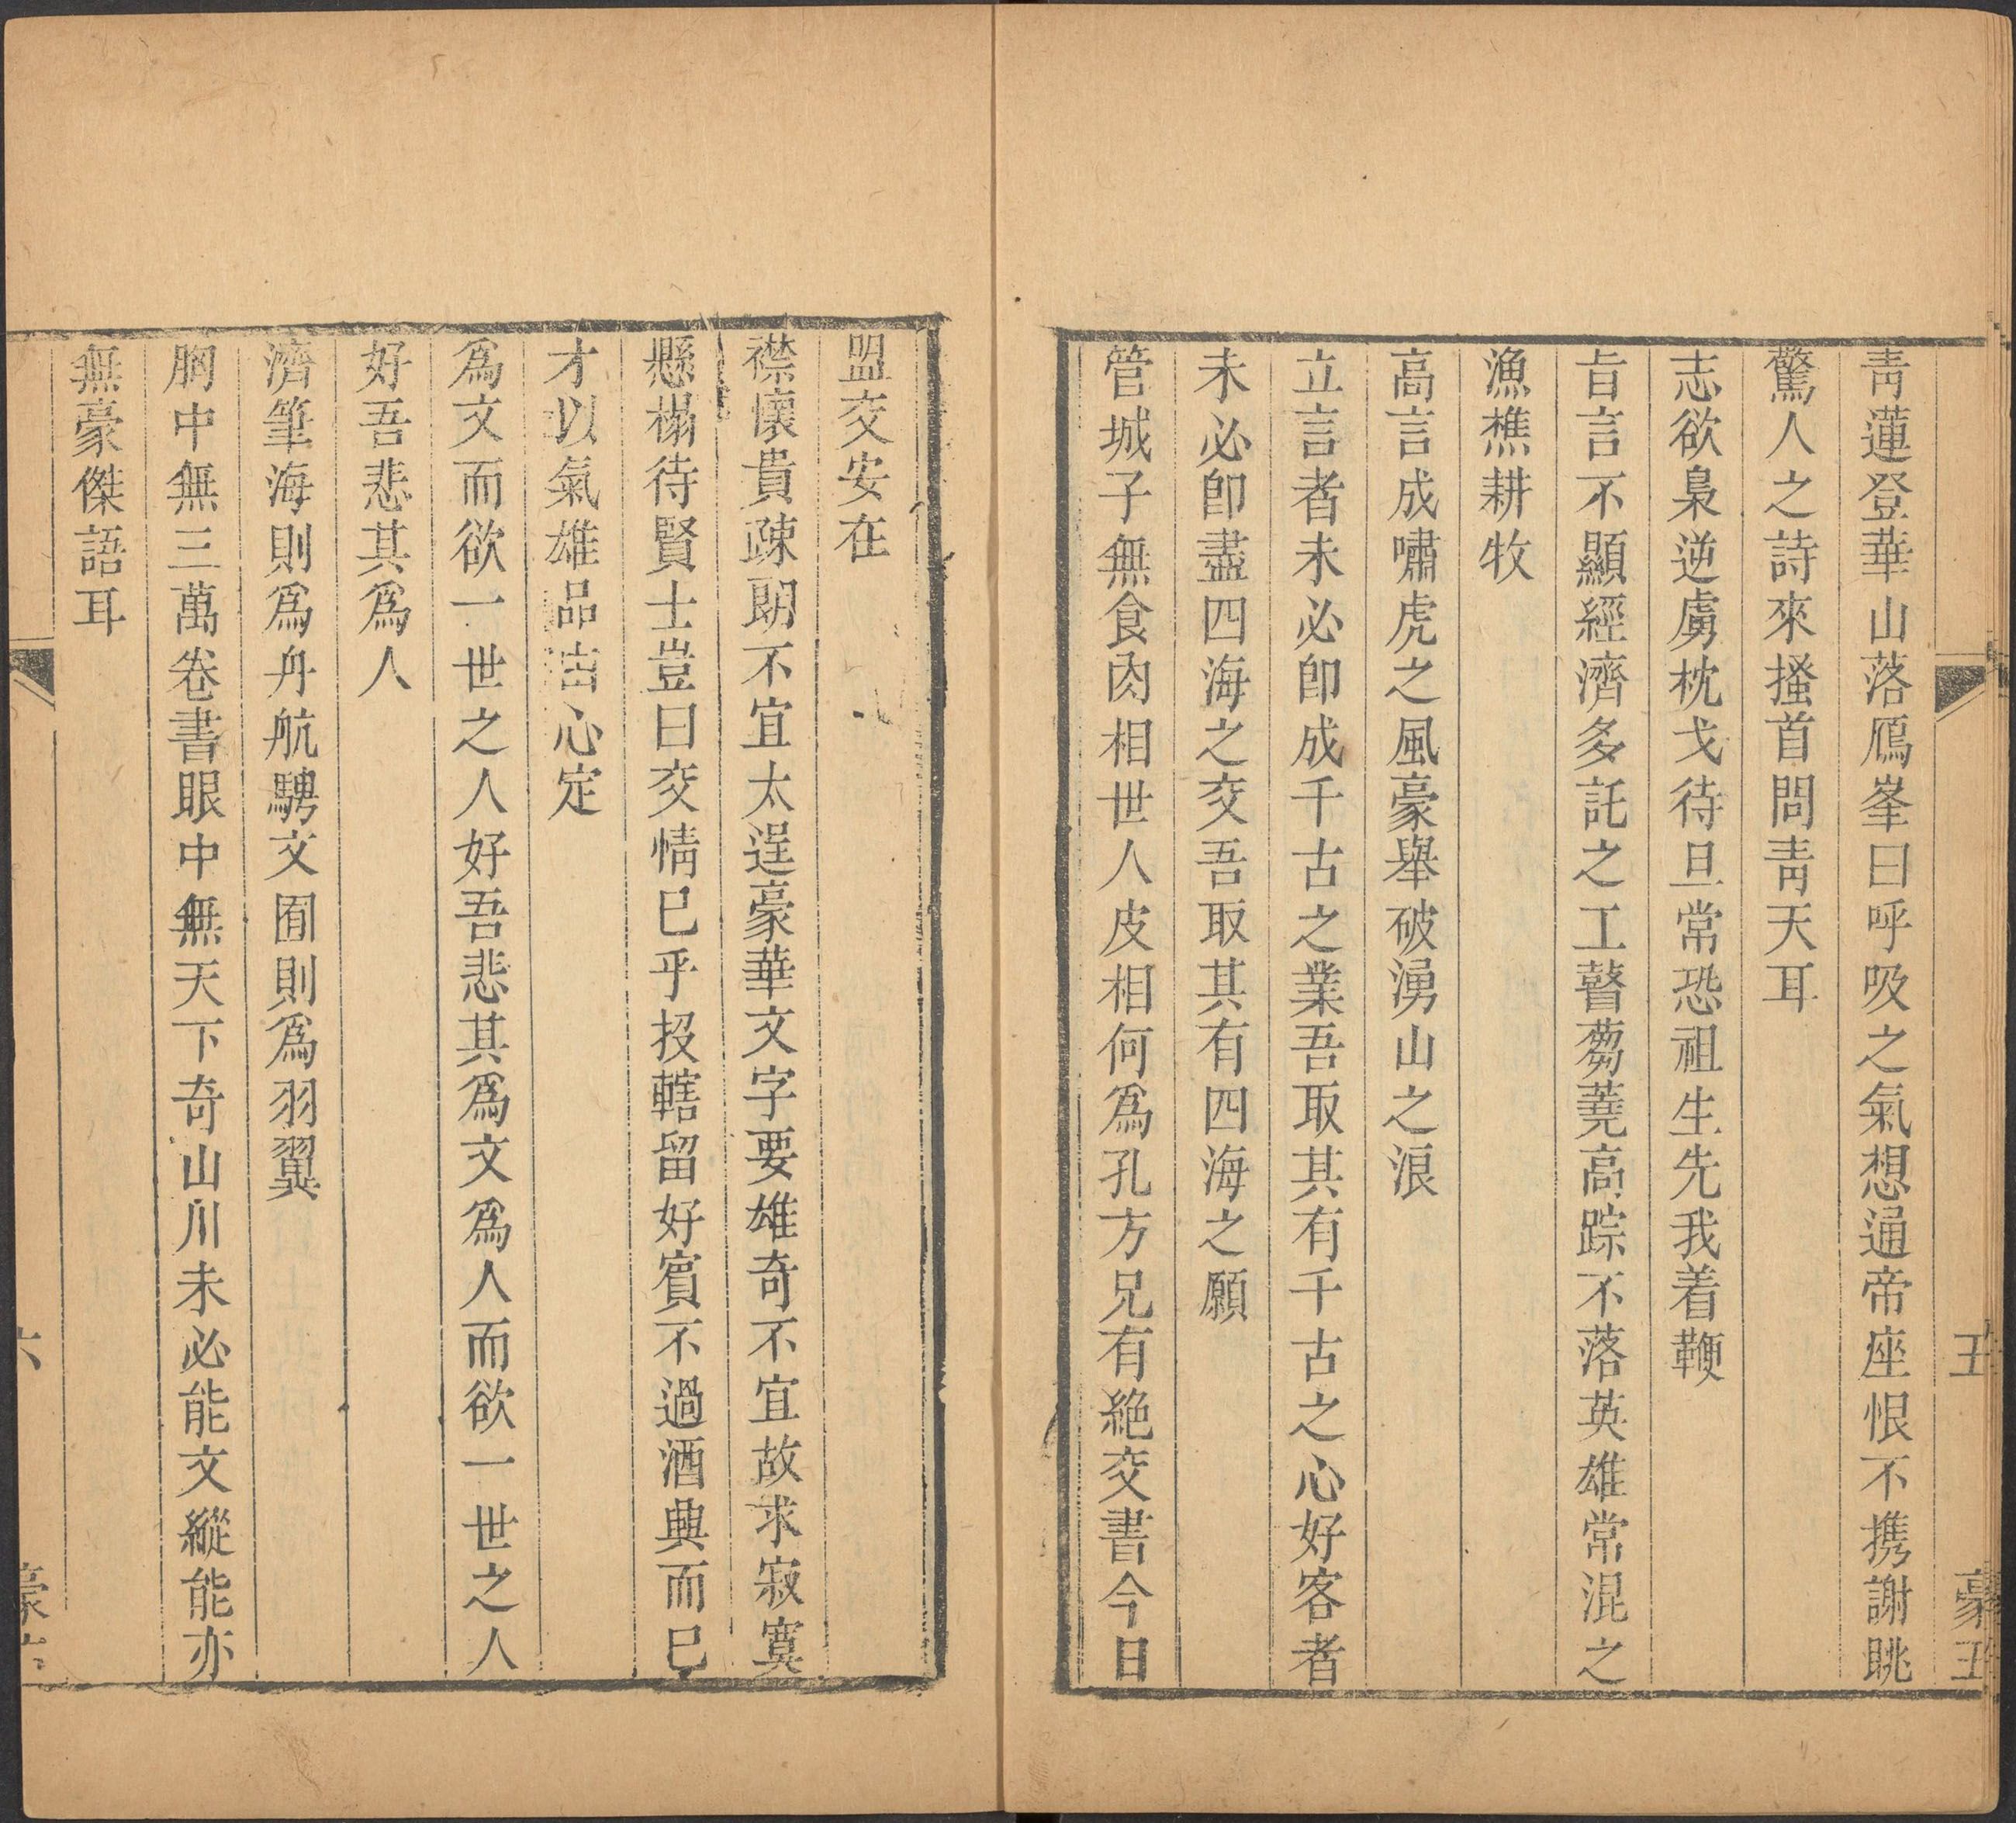 五　豪五
青蓮登華山落鴈峯曰呼吸之氣想通帝座恨不携謝眺
驚人之詩來搔首問靑天耳
志欲梟逆虜枕戈待旦常恐祖生先我着鞭
旨言不顯經濟多託之工瞽蒭蕘高踪不落英雄常混之
漁樵耕牧
高言成嘯虎之風豪舉破湧山之浪
立言者未必卽成千古之業吾取其有千古之心好客者
未必卽盡四海之交吾取其有四海之願
管城子無食肉相世人皮相何爲孔方兄有絶交書今日
盟交安在
襟懷貴疎朗不宜太逞豪華文字要雄奇不宜故求寂寞
懸榻待賢士豈曰交情已乎投轄留好賓不過酒興而已
才以氣雄品由心定
爲文而欲一世之人好吾悲其爲文爲人而欲一世之人
好吾悲其爲人
濟筆海則爲舟航騁文囿則爲羽翼
胸中無三萬卷書眼中無天下奇山川未必能文縱能亦
無豪傑語耳
六　豪六